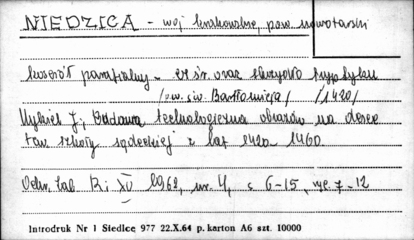 NIEDZICA - woj krakowskie, pow. nowotarski
kościół parafialny - cz śr. oraz skrzydło tryptyku
/p.w. św. Bartłomieja/ /1420/
Wykiel J., Budowa technologiczna obrazów na desce
tzw. szkoły sądeckiej z lat 1420 - 1460.
Ochr. Zab. R: XV 1962, nr. 4, s 6-15, ryc. 7-12
Introdruk Nr 1 Siedlce 977 22.X.64 p. karton A6 szt. 10000